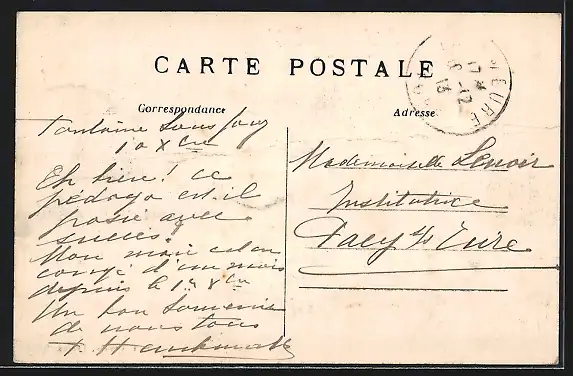 CARTE POSTALE
Correspondance
Adresse
EURE
17
-12
13
Fontaine sous Jouy
10 Xbre
Eh bien! ce
pédago est-il
passé avec
succès.
Mon mari est en
congé d'un mois
depuis le 1er Xbre
Un bon souvenir
de nous tous
Mademoiselle Lenoir
Institutrice
Pacy s/ Eure